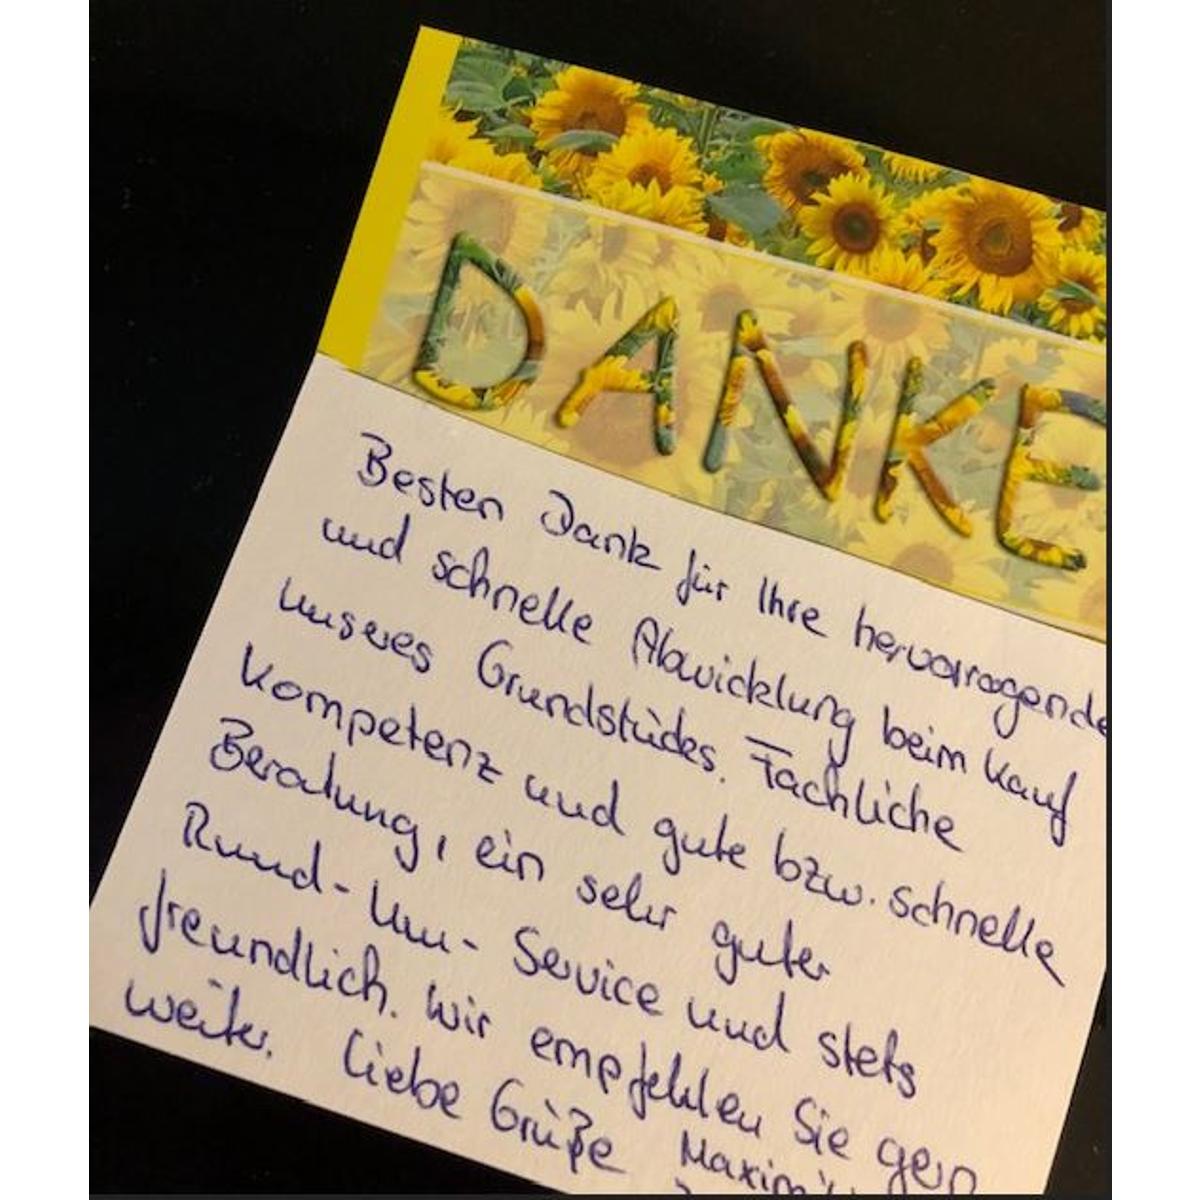 DANKE
Besten Dank für Ihre hervorragende
und schnelle Abwicklung beim Kauf
unseres Grundstücks. Fachliche
Kompetenz und gute bzw. schnelle
Beratung, ein sehr guter
Rund-Um-Service und stets
freundlich. Wir empfehlen Sie gern
weiter. Liebe Grüße